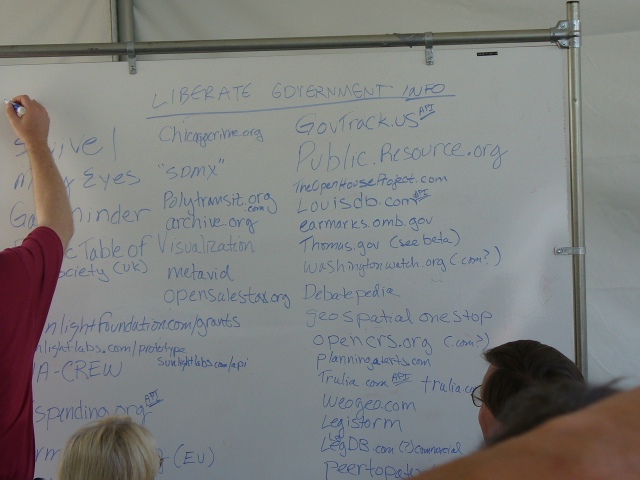 LIBERATE GOVERNMENT INFO
Swivel
many Eyes
Gapminder
Table of Visualization
Society (UK)
nlightfoundation.com/grants
nlightlabs.com/prototype
sunlightlabs.com/api
A-CREW
spending.org API
(EU)
Chicagocrime.org
"SDMX"
Polytransit.org
.com
archive.org
metavid
opensalestax.org
GovTrack.us API
Public.Resource.org
TheOpenHouseProject.com
Louisdb.com API
earmarks.omb.gov
Thomas.gov (see beta)
washingtonwatch.org (.com?)
Debatepedia
geospatial one stop
opencrs.org (.com?)
planningalerts.com
Trulia.com API
trulia.co
Weogeo.com
Legistorm
LegDB.com (?) commercial
peertopat